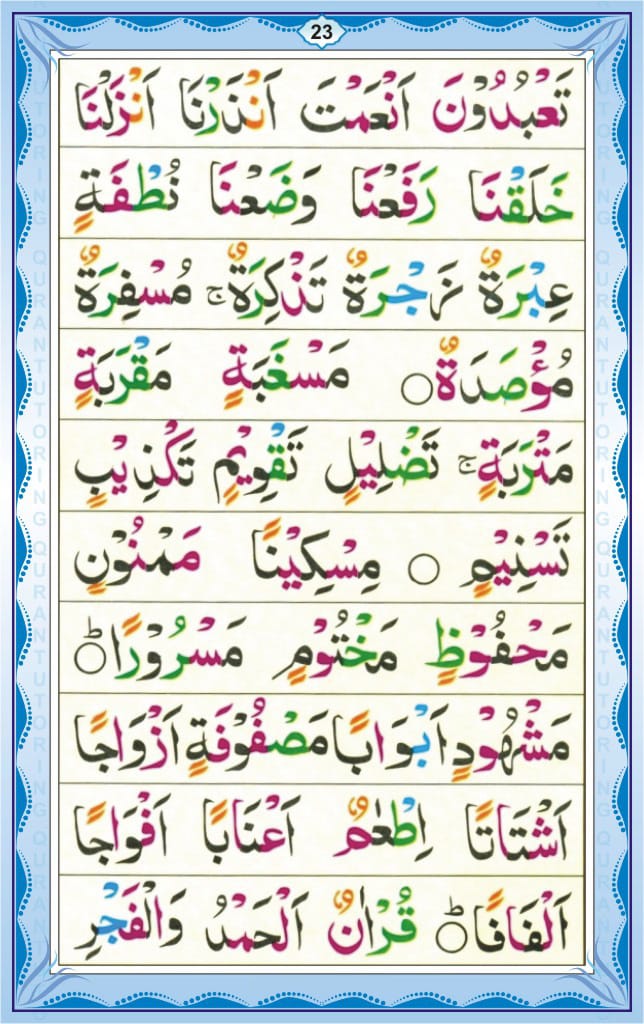 23
تَعْبُدُوْنَ اَنْعَمْتَ اَنْذَرْنَا اَنْزَلْنَا
خَلَقْنَا رَفَعْنَا وَضَعْنَا نُطْفَةٍ
عِبْرَةٌ زَجْرَةٌ تَذْكِرَةٌ ۚ مُسْفِرَةٌ
مُؤْصَدَةٌ ○ مَسْغَبَةٍ مَقْرَبَةٍ
مَتْرَبَةٍ ۚ تَضْلِيْلٍ تَقْوِيْمٍ تَكْذِيْبٍ
تَسْنِيْمٍ ○ مِسْكِيْنًا مَمْنُوْنٍ
مَحْفُوْظٍ مَخْتُوْمٍ مَسْرُوْرًا ○ؕ
مَشْهُوْدٍ اَبْوَابًا مَصْفُوْفَةٍ اَزْوَاجًا
اَشْتَاتًا اِطْعٰمٌ اَعْنَابًا اَفْوَاجًا
اَلْفَافًا ○ؕ قُرْاٰنٌ اَلْحَمْدُ وَالْفَجْرِ
QURAN TUTORING QURAN TUTORING